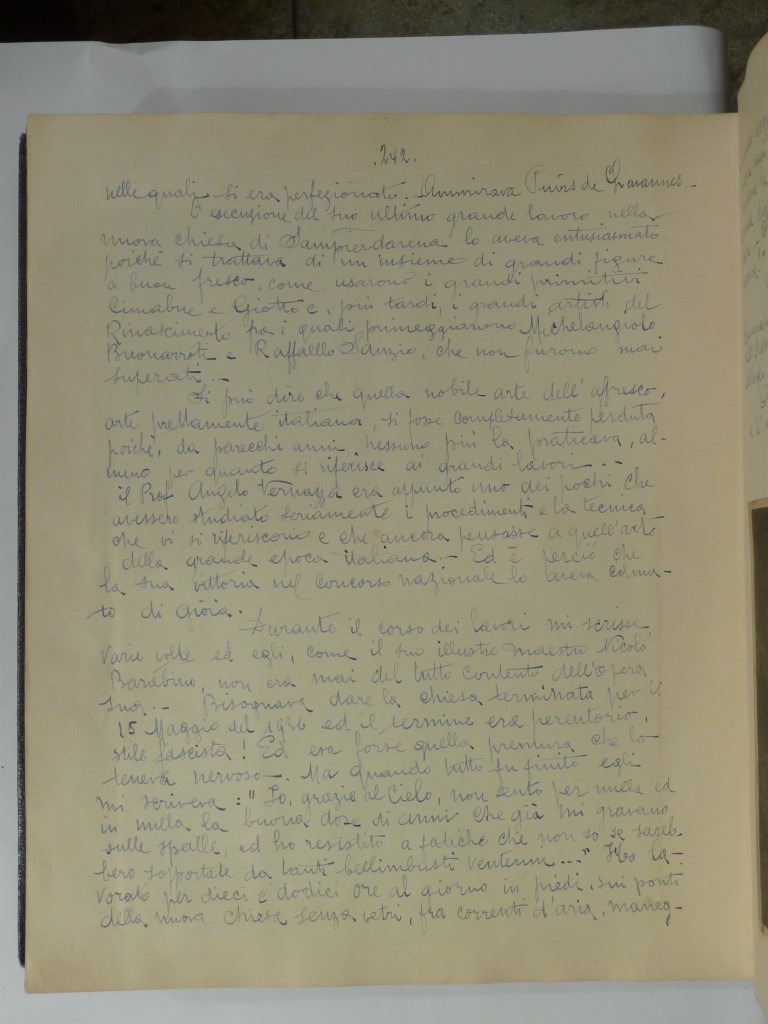 .242.
nelle quali si era perfezionato. Ammirava Puvis de Chavannes.-
L'esecuzione del suo ultimo grande lavoro nella
nuova chiesa di Sampierdarena lo aveva entusiasmato
poichè si trattava di un insieme di grandi figure
a buon fresco, come usarono i grandi primitivi
Cimabue e Giotto e, più tardi, i grandi artisti del
Rinascimento fra i quali primeggiarono Michelangiolo
Buonarroti e Raffaello Sanzio, che non furono mai
superati.-
Si può dire che quella nobile arte dell'afresco,
arte prettamente italiana, si fosse completamente perduta
poichè, da parecchi anni nessuno più la praticava, al-
meno per quanto si riferisce ai grandi lavori.-
il Prof. Angelo Vernazza era appunto uno dei pochi che
avessero studiato seriamente i procedimenti e la tecnica
che vi si riferiscono e che ancora pensasse a quell'arte
della grande epoca italiana.- Ed è perciò che
la sua vittoria nel Concorso nazionale lo aveva colma-
to di gioia.
Durante il corso dei lavori mi scrisse
varie volte ed egli, come il suo illustre maestro Nicolò
Barabino, non era mai del tutto contento dell'opera
sua.- Bisognava dare la chiesa terminata per il
15 Maggio del 1936 ed il termine era perentorio,
stile fascista! Ed era forse quella premura che lo
teneva nervoso-. Ma quando tutto fu finito egli
mi scriveva: "Io, grazie al Cielo, non sento per nulla ed
in nulla la buona dose di anni che già mi gravano
sulle spalle, ed ho resistito a fatiche che non so se sareb-
bero sopportate da tanti bellimbusti ventenni...." Ho la-
vorato per dieci e dodici ore al giorno in piedi, sui ponti
della nuova chiesa senza vetri, fra correnti d'aria, maneg-